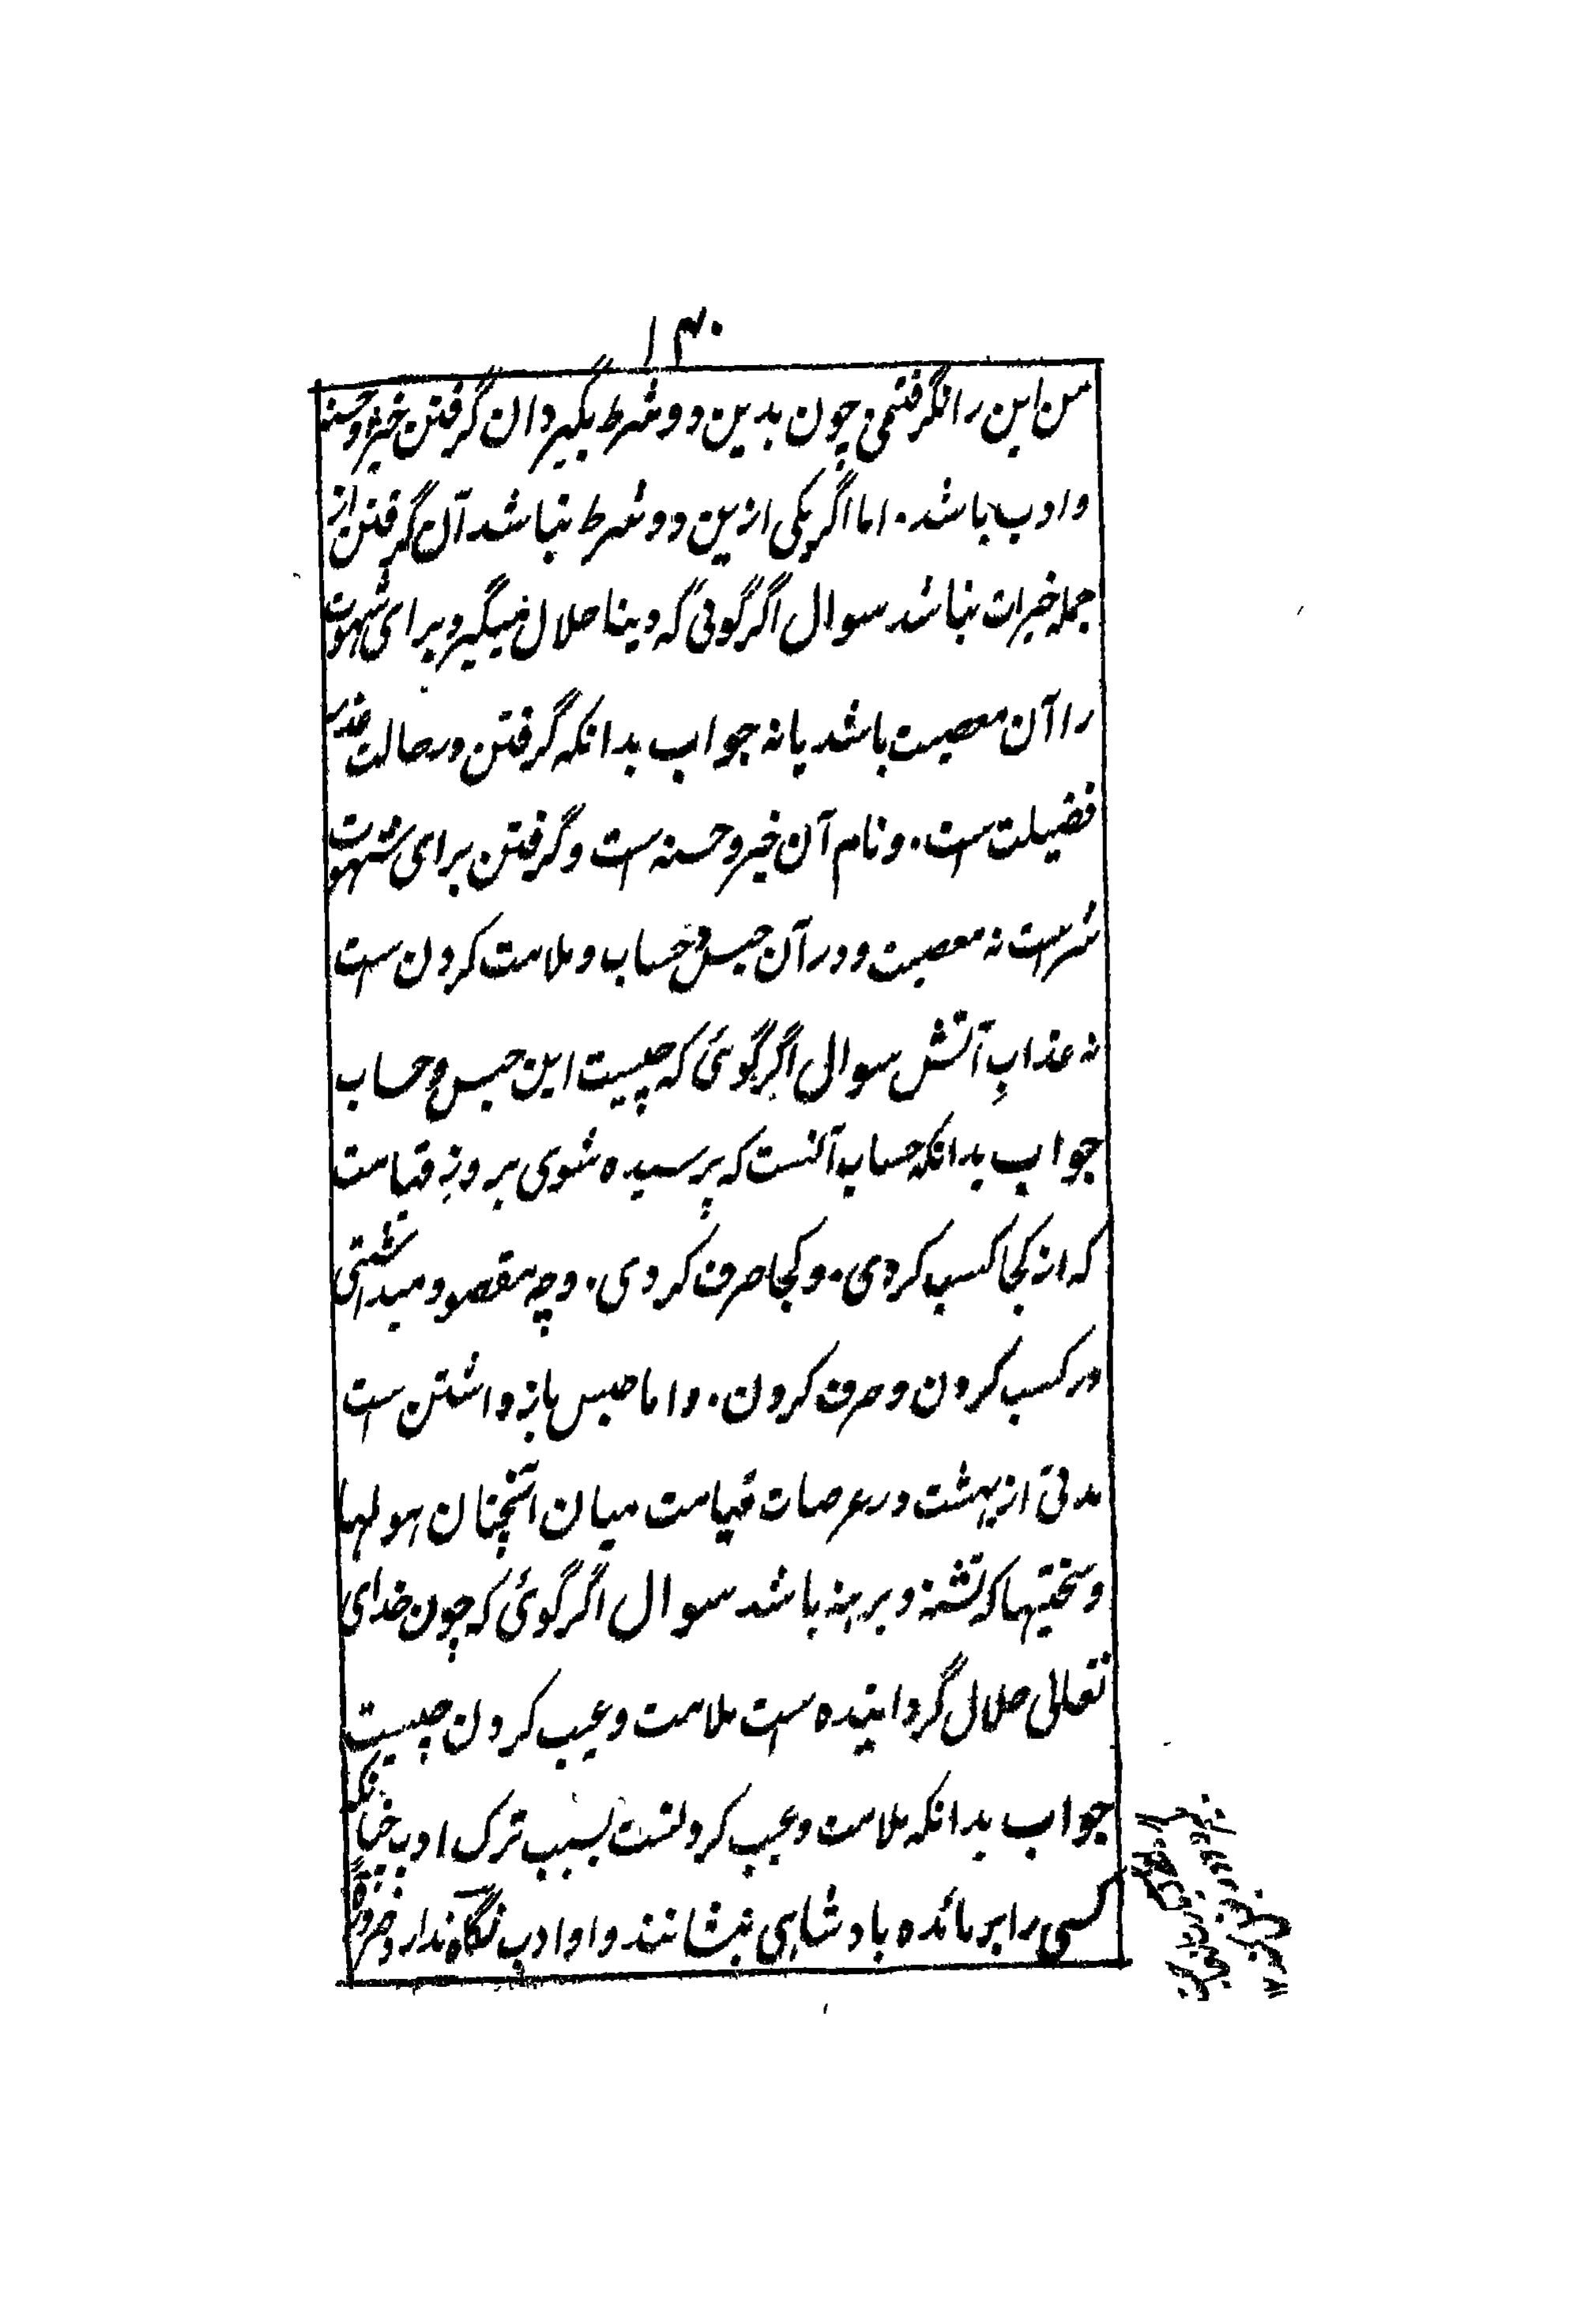 ۱۴۰
من این را نگرفتمی و چون بدین دو شرط بگیرد آن گرفتن خیر و حسنه
و ادب باشد. اما اگر یکی ازین دو شرط نباشد آن گرفتن از
جمله خیرات نباشد سوال اگر گوئی که دنیا حلال میگیرد برای شهوت
را آن معصیت باشد یا نه جواب بدانکه گرفتن در حالت عذر
فضیلت ست. و نام آن خیر و حسنه است و گرفتن برای شهوت
شر است نه معصیت و در آن حبس و حساب و ملامت کردن ست
نه عذابِ آتش سوال اگر گوئی که چیست این حبس و حساب
جواب بدانکه حساب آنست که پرسیده شوی بروزِ قیامت
که از کجا کسب کردی. و کجا صرف کردی. و چه مقصود میداشتی
در کسب کردن و صرف کردن. و اما حبس باز داشتن ست
مدتی از بهشت در عرصات قیامت میان آنچنان هولها
و سختیها که تشنه و برهنه باشد سوال اگر گوئی که چون خدای
تعالی حلال گردانیده ست ملامت و عیب کردن چیست
جواب بدانکه ملامت و عیب کردنست بسبب ترک ادب چنانکه
کسی را بر مائده بادشاهی بنشانند و او ادب نگاه ندارد